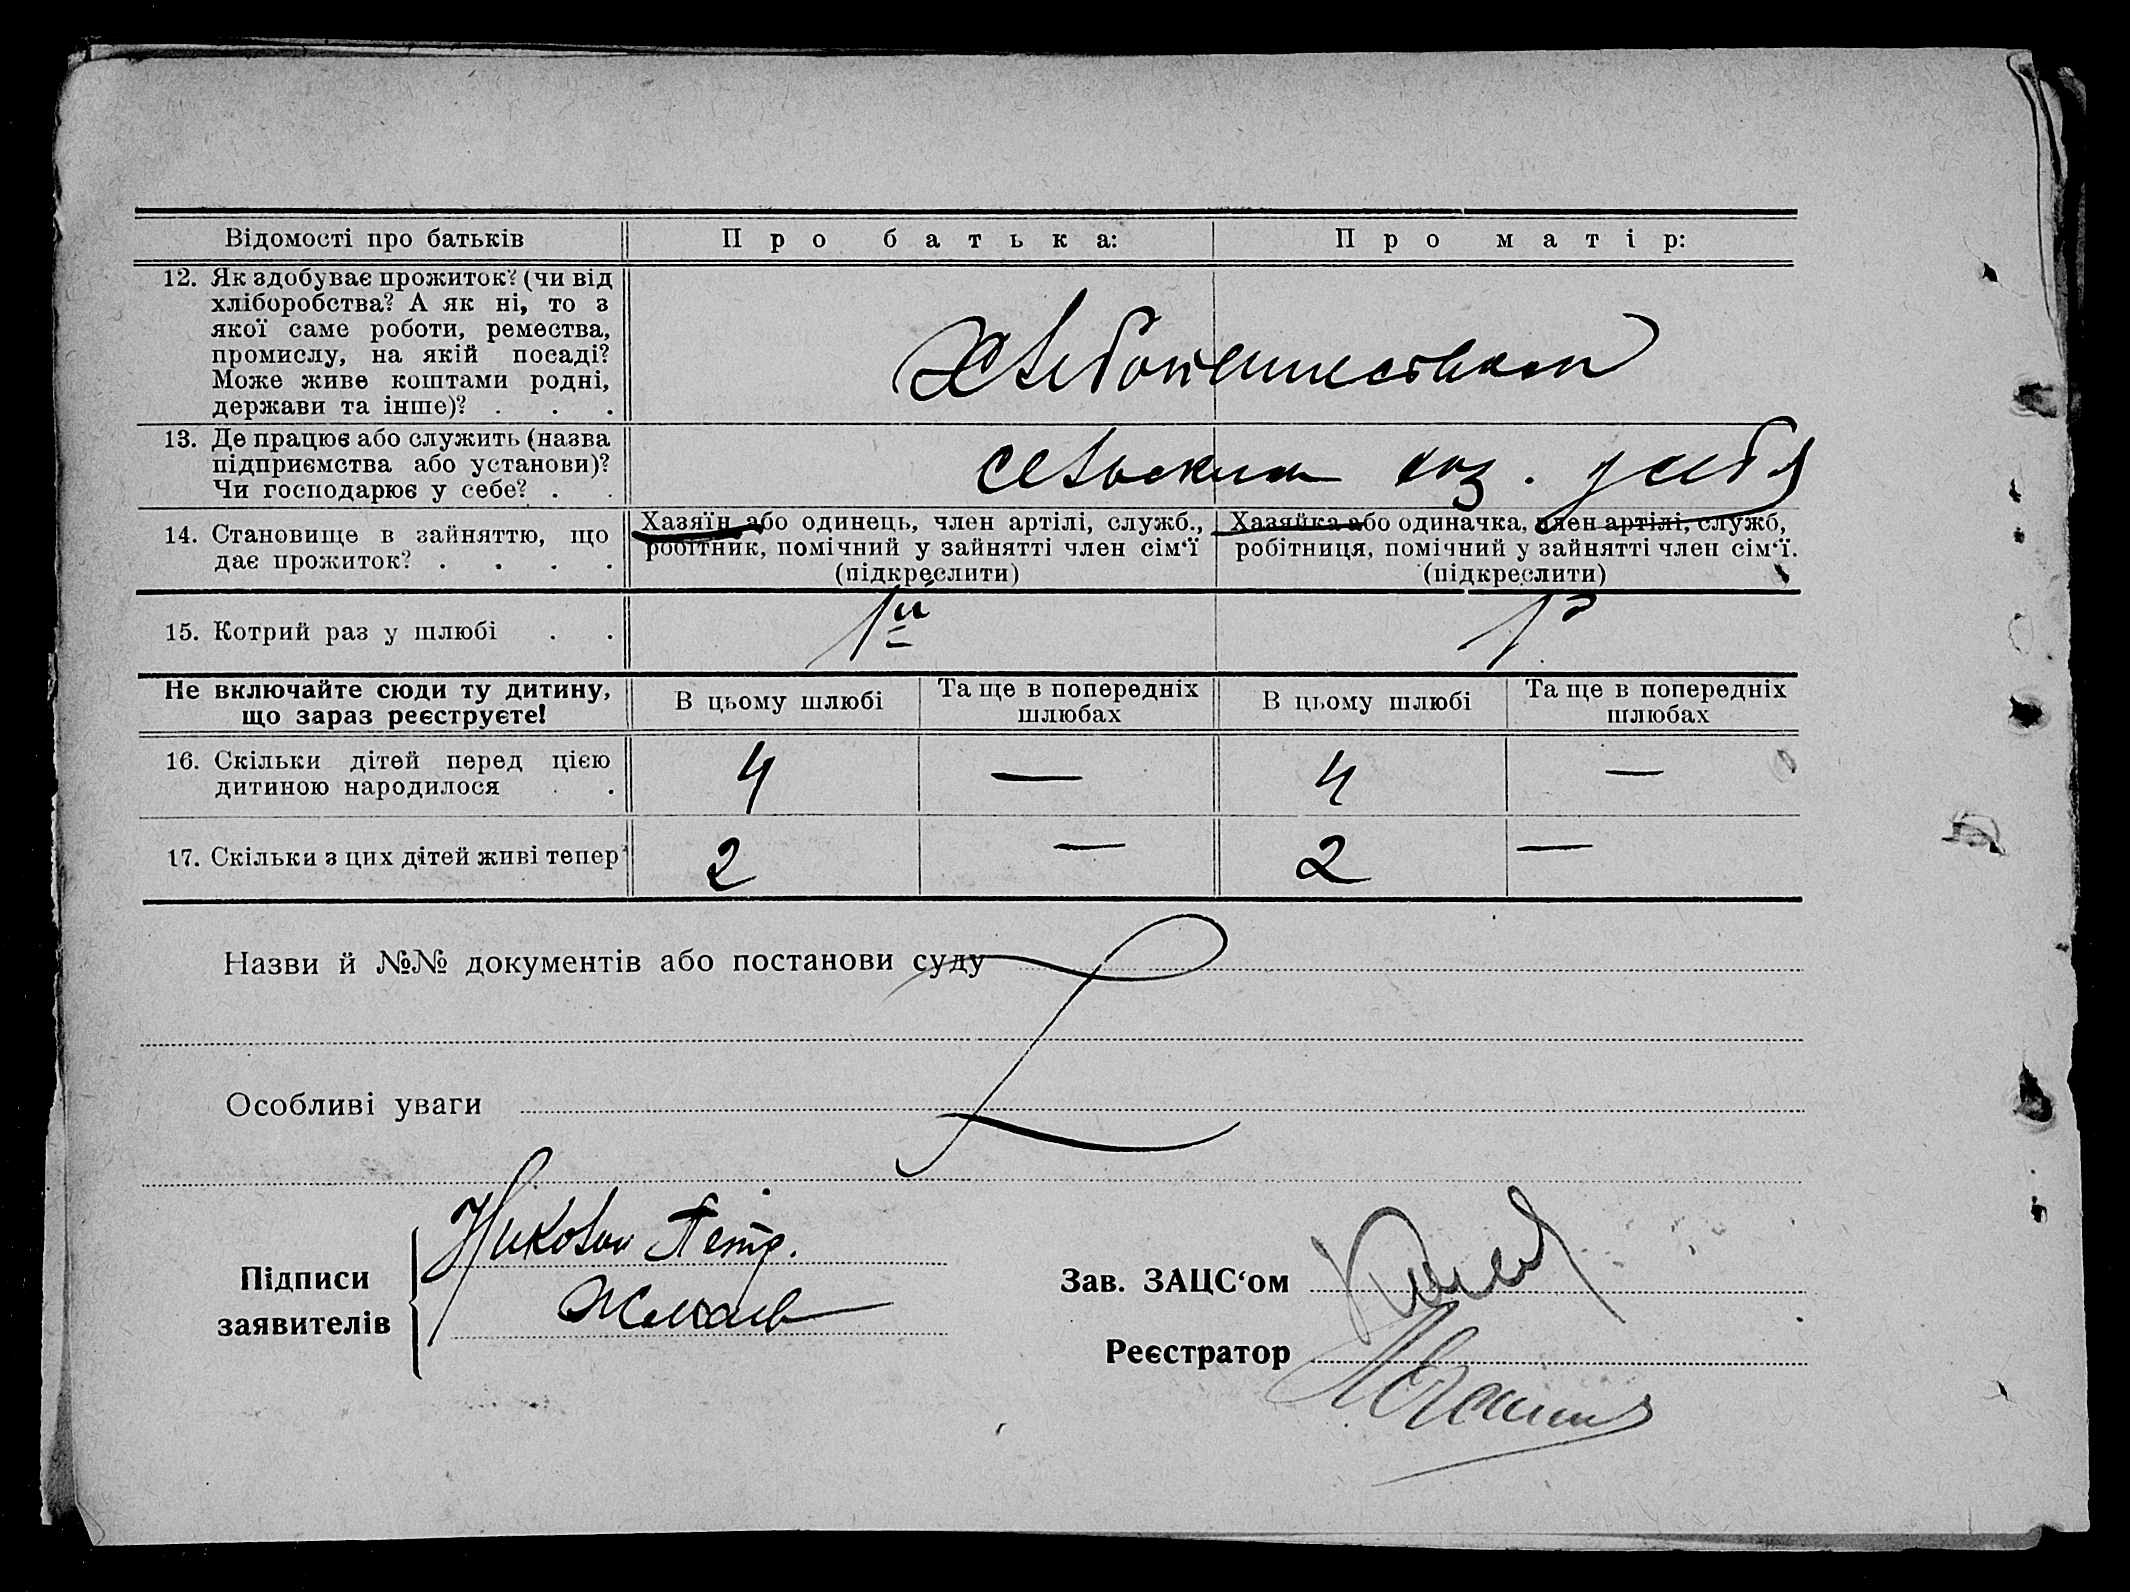 Відомості про батьків
Про батька:
Про матір:
12. Як здобуває прожиток? (чи від
хліборобства? А як ні, то з
якої саме роботи, ремества,
промислу, на якій посаді?
Може живе коштами родні,
держави та інше)? . . .
Хлебопашеством
13. Де працює або служить (назва
підприємства або установи)?
Чи господарює у себе? . .
сельским хоз. у себя
14. Становище в зайняттю, що
дає прожиток? . . . .
Хазяїн або одинець, член артілі, служб.,
робітник, помічний у зайнятті член сім‘ї
(підкреслити)
Хазяйка або одиначка, член артілі, служб,
робітниця, помічний у зайнятті член сім‘ї.
(підкреслити)
15. Котрий раз у шлюбі . .
1й
1й
Не включайте сюди ту дитину,
що зараз реєструєте!
В цьому шлюбі
Та ще в попередніх
шлюбах
В цьому шлюбі
Та ще в попередніх
шлюбах
16. Скільки дітей перед цією
дитиною народилося . .
4 — 4 —
17. Скільки з цих дітей живі тепер
2 — 2 —
Назви й №№ документів або постанови суду
Особливі уваги
Підписи
заявителів
Николай Петр.
Зав. ЗАЦС‘ом
Реєстратор